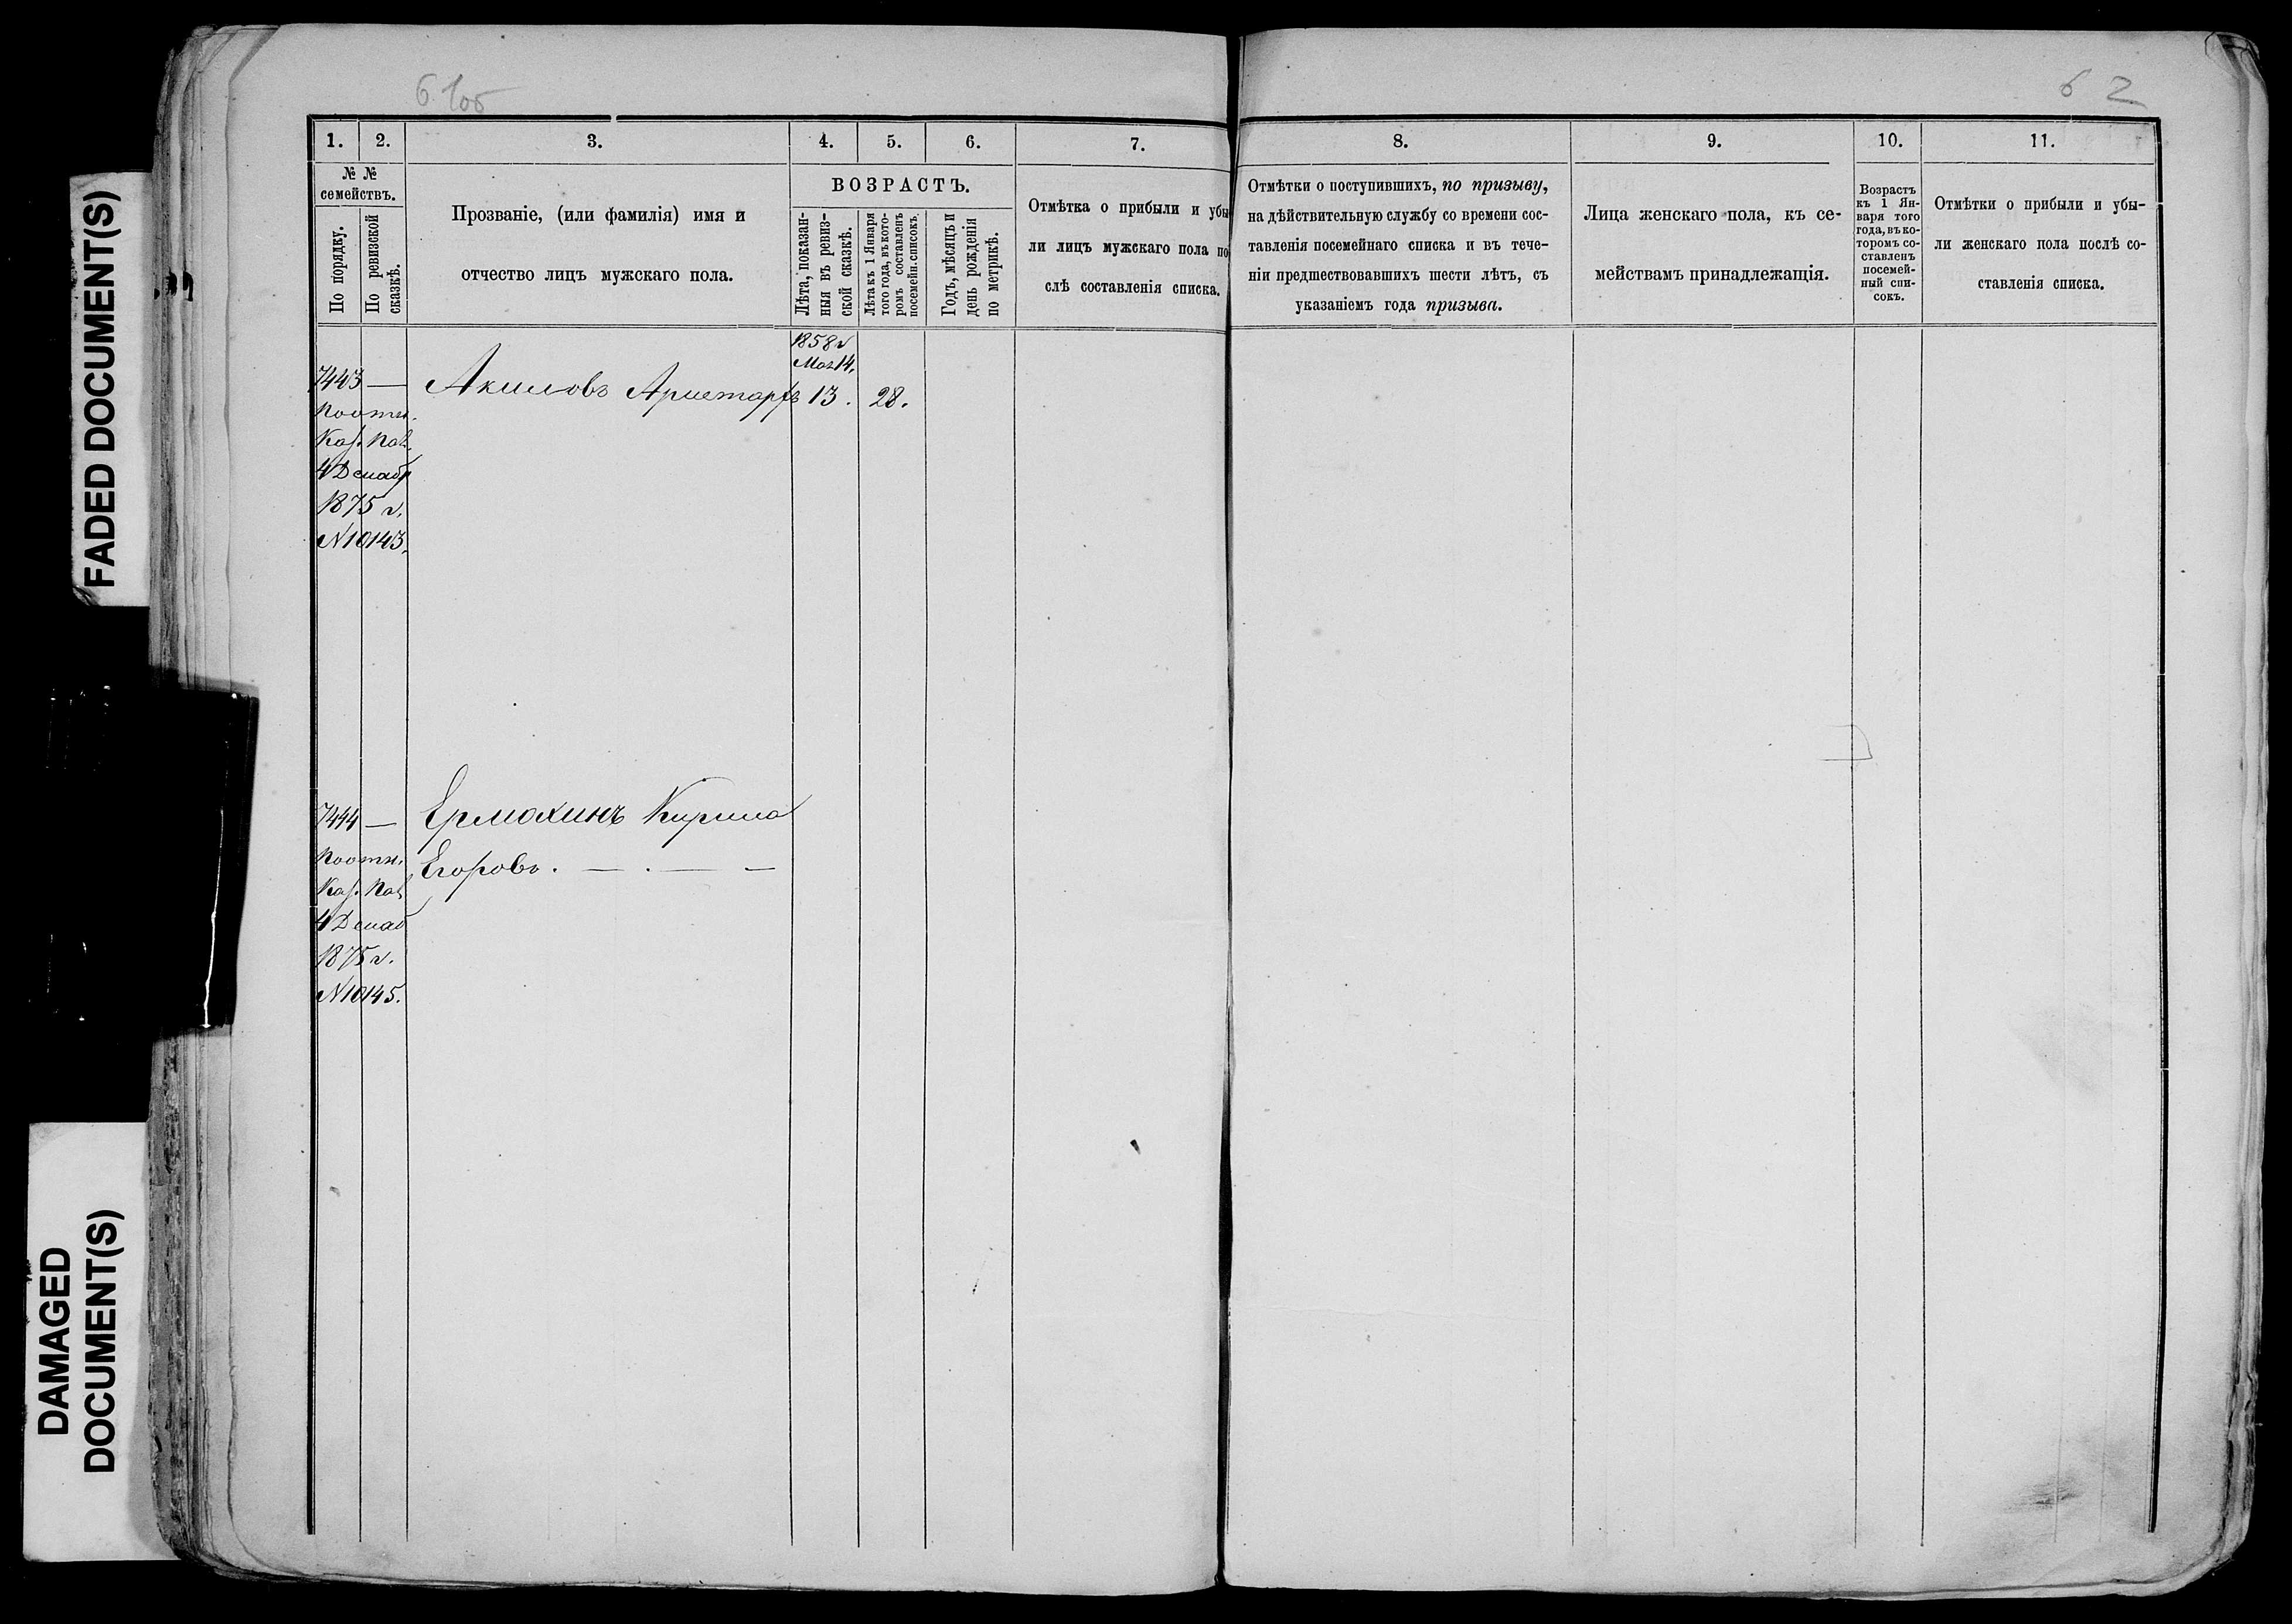 61об
62
1. 2. 3. 4. 5. 6. 7. 8. 9. 10. 11.
№ №
семействъ.
По порядку.
По ревизской
сказкѣ.
Прозваніе, (или фамилія) имя и
отчество лицъ мужскаго пола.
ВОЗРАСТЪ.
Лѣта, показан-
ныя въ ревиз-
ской сказкѣ.
Лѣта къ 1 Января
того года, въ кото-
ромъ составленъ
посемейн. списокъ.
Годъ, мѣсяцъ и
день рожденія
по метрикѣ.
Отмѣтка о прибыли и убы
ли лицъ мужскаго пола по
слѣ составленія списка.
Отмѣтки о поступившихъ, по призыву,
на дѣйствительную службу со времени сос-
тавленія посемейнаго списка и въ тече-
ніи предшествовавшихъ шести лѣтъ, съ
указаніемъ года призыва.
Лица женскаго пола, къ се-
мействамъ принадлежащія.
Возрастъ
къ 1 Ян-
варя того
года, въ ко-
торомъ со-
ставленъ
посемей-
ный спи-
сокъ.
Отмѣтки о прибыли и убы-
ли женскаго пола послѣ со-
ставленія списка.
1858 г
Мая 14.
7443 — Акиловъ Аристархъ 13. 28.
Каз. Пал.
4 Декабр
1875 г.
№ 10143.
7444 — Ермохинъ Кирила
Егоровъ. — . — —
Каз. Пал
4 Декаб
1875 г.
№ 10145.
FADED DOCUMENT(S)
DAMAGED
DOCUMENT(S)